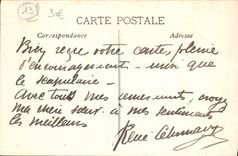 13
3€
CARTE POSTALE
Correspondance Adresse
Bien reçu votre carte, pleine
d'encouragements - ainsi que
le scapulaire -
Avec tous mes remerciements, croyez
ma chère sœur à mes sentiments
les meilleurs
René